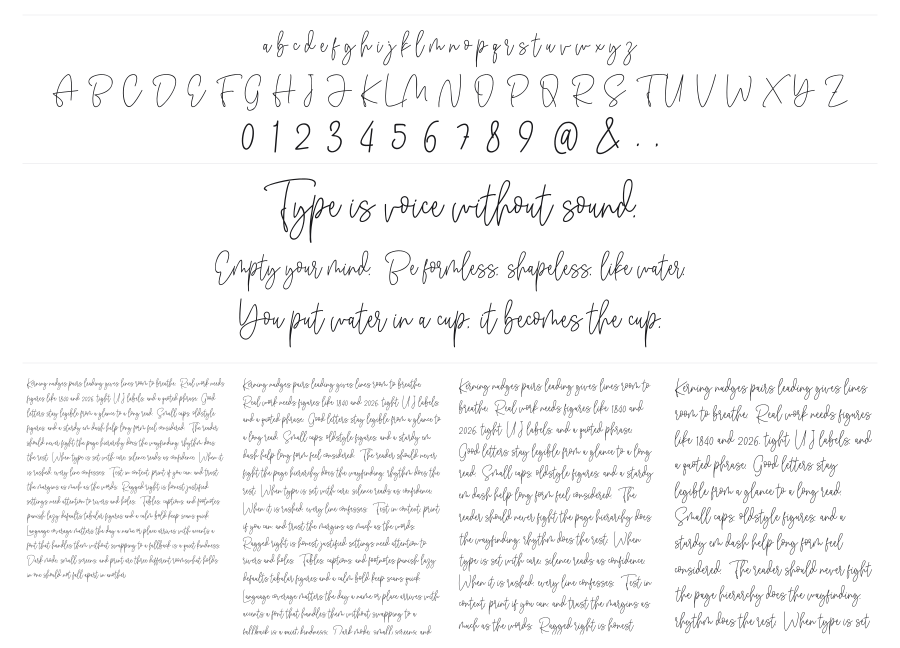 a b c d e f g h i j k l m n o p q r s t u v w x y z
A B C D E F G H I J K L M N O P Q R S T U V W X Y Z
0 1 2 3 4 5 6 7 8 9 @ & . .
Type is voice without sound.
Empty your mind. Be formless. shapeless. like water.
You put water in a cup. it becomes the cup.
Kerning nudges pairs leading gives lines room to breathe. Real work needs
figures like 1840 and 2026. tight U J labels. and a quoted phrase. Good
letters stay legible from a glance to a long read. Small caps. oldstyle
figures. and a sturdy em dash help long form feel considered. The reader
should never fight the page hierarchy does the wayfinding. rhythm does
the rest. When type is set with care. silence reads as confidence. When it
is rushed. every line confesses. Test in context. print if you can. and trust
the margins as much as the words. Ragged right is honest. justified
settings need attention to rivers and holes. Tables. captions. and footnotes
punish lazy defaults tabular figures and a calm bold keep scans quick.
Language coverage matters the day a name or place arrives with accents a
font that handles them without swapping to a fallback is a quiet kindness.
Dark mode. small screens. and print are three different rooms what holds
in one should not fall apart in another.
Kerning nudges pairs leading gives lines room to breathe.
Real work needs figures like 1840 and 2026. tight U J labels.
and a quoted phrase. Good letters stay legible from a glance to
a long read. Small caps. oldstyle figures. and a sturdy em
dash help long form feel considered. The reader should never
fight the page hierarchy does the wayfinding. rhythm does the
rest. When type is set with care. silence reads as confidence.
When it is rushed. every line confesses. Test in context. print
if you can. and trust the margins as much as the words.
Ragged right is honest. justified settings need attention to
rivers and holes. Tables. captions. and footnotes punish lazy
defaults tabular figures and a calm bold keep scans quick.
Language coverage matters the day a name or place arrives with
accents a font that handles them without swapping to a
fallback is a quiet kindness. Dark mode. small screens. and
Kerning nudges pairs leading gives lines room to
breathe. Real work needs figures like 1840 and
2026. tight U J labels. and a quoted phrase.
Good letters stay legible from a glance to a long
read. Small caps. oldstyle figures. and a sturdy
em dash help long form feel considered. The
reader should never fight the page hierarchy does
the wayfinding. rhythm does the rest. When
type is set with care. silence reads as confidence.
When it is rushed. every line confesses. Test in
context. print if you can. and trust the margins as
much as the words. Ragged right is honest.
Kerning nudges pairs leading gives lines
room to breathe. Real work needs figures
like 1840 and 2026. tight U J labels. and
a quoted phrase. Good letters stay
legible from a glance to a long read.
Small caps. oldstyle figures. and a
sturdy em dash help long form feel
considered. The reader should never fight
the page hierarchy does the wayfinding.
rhythm does the rest. When type is set